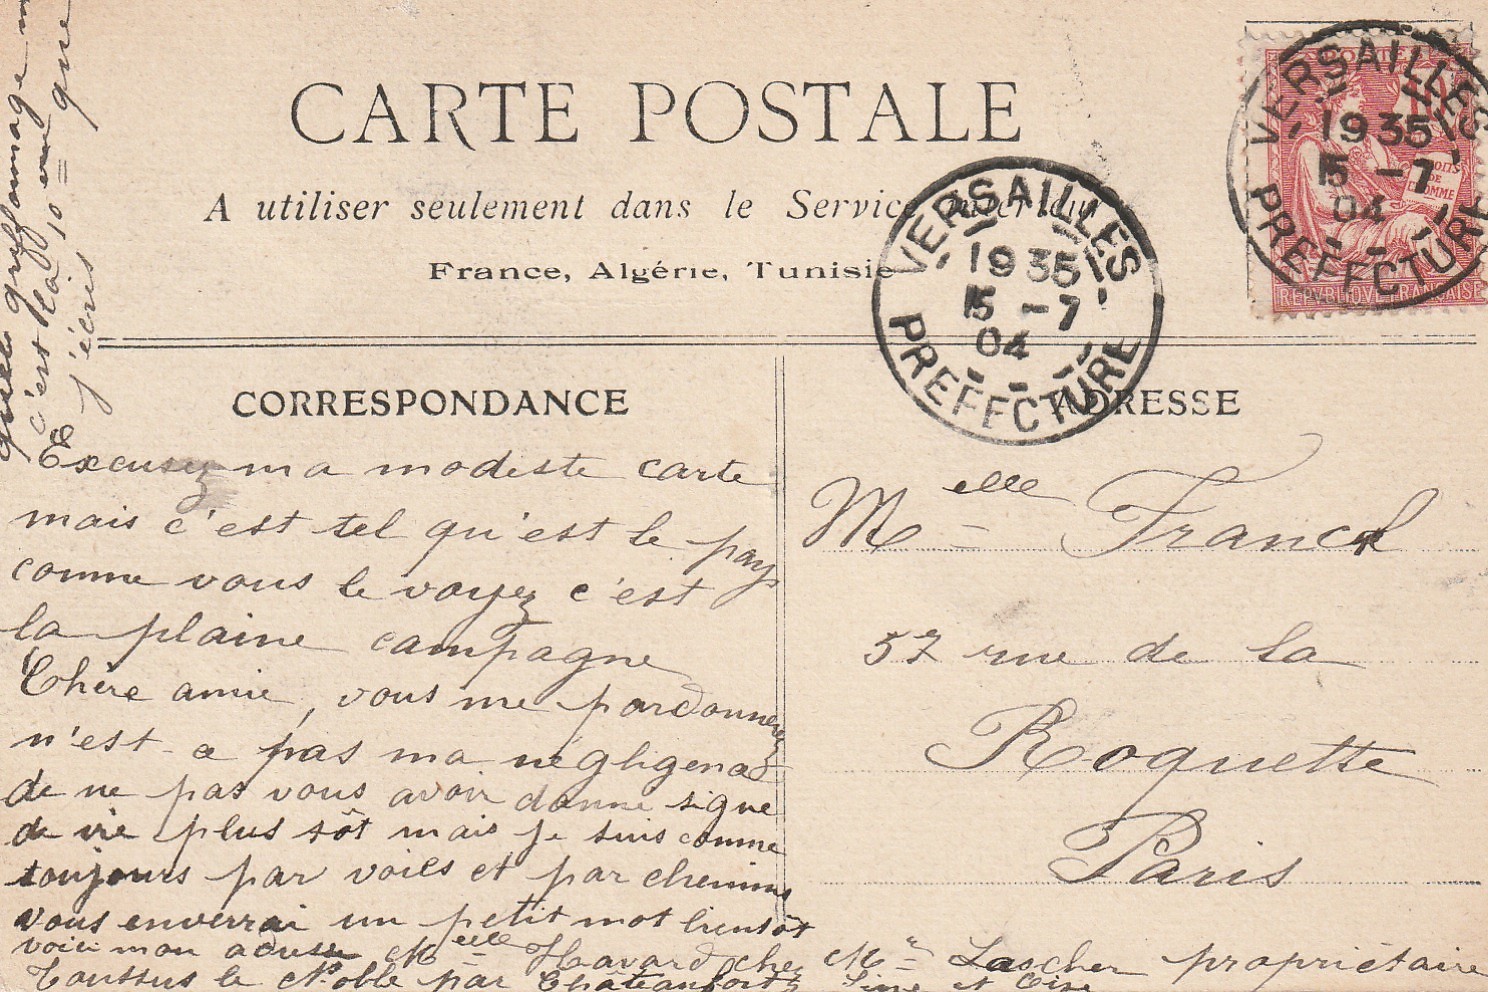 CARTE POSTALE
A utiliser seulement dans le Service intérieur
France, Algérie, Tunisie
VERSAILLES
1935
15 -7
04
PREFECTURE
VERSAILLES
1935
15 -7
04
PREFECTURE
POSTES
DROITS
DE
L'HOMME
REPUBLIQUE FRANÇAISE
CORRESPONDANCE
ADRESSE
Excusez ma modeste carte
mais c'est tel qu'est le pays
comme vous le voyez c'est
la plaine campagne
Chère amie, vous me pardonnerez
n'est-a pas ma négligence
de ne pas vous avoir donné signe
de vie plus tôt mais je suis comme
toujours par voies et par chemins
vous enverrai un petit mot bientôt
voici mon adresse Melle Havard chez Mr Lascher propriétaire
Toussus le Noble par Châteaufort Seine et Oise
Melle Franck
57 rue de la
Roquette
Paris
quels griffonnage
c'est là en
j'écris 10 que